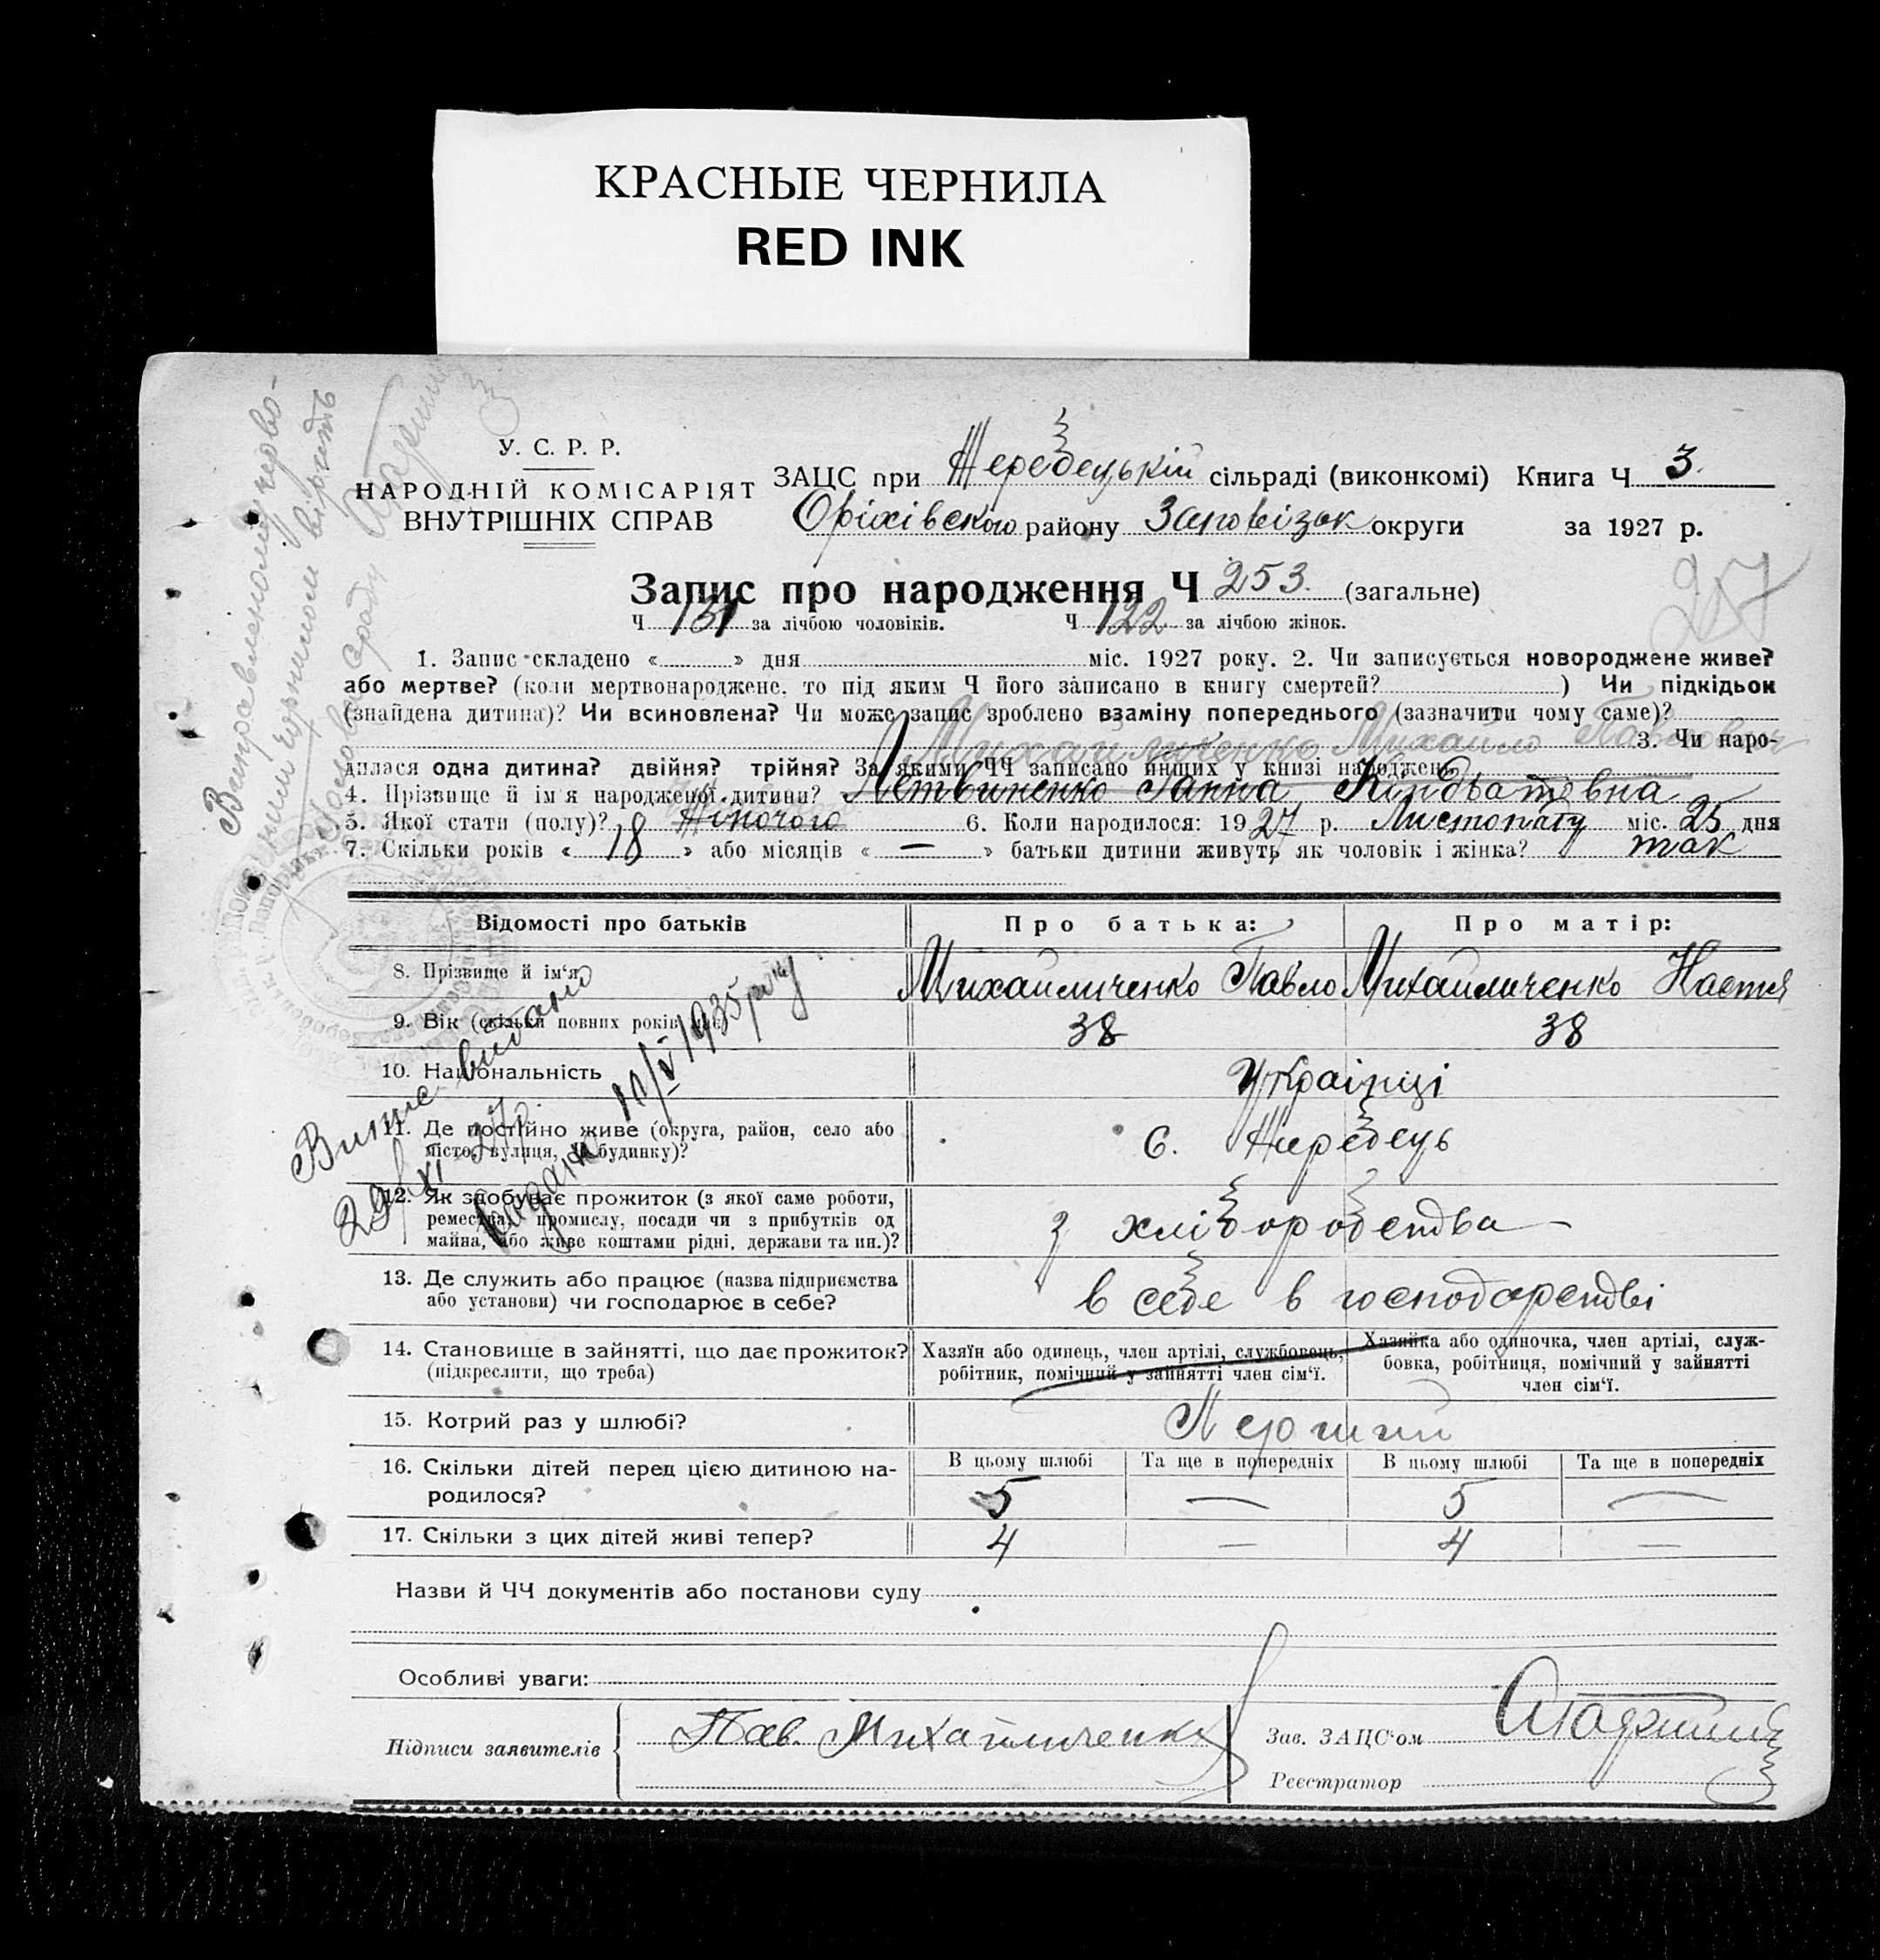 КРАСНЫЕ ЧЕРНИЛА
RED INK
У. С. Р. Р.
НАРОДНІЙ КОМІСАРІЯТ
ВНУТРІШНІХ СПРАВ
ЗАЦС при Жеребецькій сільраді (виконкомі) Книга Ч 3.
Оріхівського району Запорізьк округи за 1927 р.
Запис про народження Ч 253. (загальне)
257
Ч 131 за лічбою чоловіків. Ч 122 за лічбою жінок.
1. Запис складено « » дня міс. 1927 року. 2. Чи записується новороджене живе?
або мертве? (коли мертвонароджене, то під яким Ч його записано в книгу смертей? ) Чи підкідьок
(знайдена дитина)? Чи всиновлена? Чи може запис зроблено взаміну попереднього (зазначити чому саме)?
Михайличенко Михайло Павлович 3. Чи наро-
дилася одна дитина? двійня? трійня? За якими ЧЧ записано инших у книзі народжень
4. Прізвище й ім'я народженої дитини? Литвиненко Ганна Кіндратовна
5. Якої стати (полу)? Жіночого 6. Коли народилося: 1927 р. Листопаду міс. 25 дня
7. Скільки років « 18 » або місяців « — » батьки дитини живуть як чоловік і жінка? так
Відомості про батьків Про батька: Про матір:
8. Прізвище й ім'я Михайличенко Павло Михайличенко Настя
9. Вік (скільки повних років має) 38 38
10. Національність Українці
11. Де постійно живе (округа, район, село або
місто, вулиця, Ч будинку)? С. Жеребець
12. Як здобуває прожиток (з якої саме роботи,
ремества, промислу, посади чи з прибутків од
майна, або живе коштами рідні, держави та ин.)? з хліборобства —
13. Де служить або працює (назва підприємства
або установи) чи господарює в себе? в себе в господарстві
14. Становище в зайнятті, що дає прожиток?
(підкреслити, що треба)
Хазяїн або одинець, член артілі, службовець,
робітник, помічний у зайнятті член сім'ї.
Хазяйка або одиночка, член артілі, служ-
бовка, робітниця, помічний у зайнятті
член сім'ї.
15. Котрий раз у шлюбі? Перший
В цьому шлюбі Та ще в попередніх В цьому шлюбі Та ще в попередніх
16. Скільки дітей перед цією дитиною на-
родилося? 5 — 5 —
17. Скільки з цих дітей живі тепер? 4 — 4 —
Назви й ЧЧ документів або постанови суду
Особливі уваги:
Підписи заявителів Пав. Михайличенко
Зав. ЗАЦС'ом
Реєстратор
Виправленому черво-
ним чорнилом вірить
Голова сільради
Випис видано
29/XI 27р.
видано 11/V 1935 року